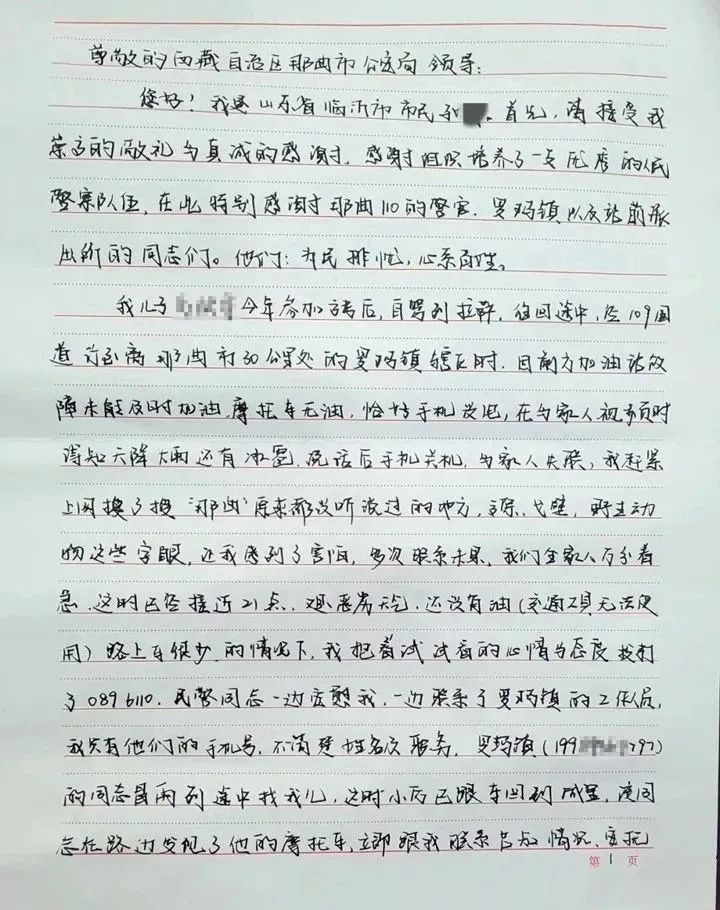 尊敬的西藏自治区那曲市公安局领导:
您好!我是山东省临沂市市民 。首先,请接受我
崇高的敬礼与真诚的感谢。感谢组织培养了一支优秀的人民
警察队伍,在此特别感谢那曲110的警官、罗玛镇以及站前派
出所的同志们。他们:为民排忧,心系百姓。
我儿子 今年参加 后,自驾到拉萨,返回途中,在109国
道 离那曲市30公里处的罗玛镇辖区时,因前方加油站故
障未能及时加油,摩托车无油,恰好手机没电,在与家人视频时
得知天降大雨还有冰雹,说话后手机关机,与家人失联,我赶紧
上网搜了搜“那曲”原来都没听说过的地方,高原、戈壁,野生动
物这些字眼,让我感到了害怕,多次联系未果,我们全家人万分着
急,这时已经接近21点,又是恶劣天气,还没有油(交通工具无法使
用)路上车很少的情况下,我抱着试试看的心情与态度拨打
了0896110,民警同志一边安慰我,一边联系了罗玛镇的工作人员,
我只有他们的手机号,不清楚姓名及职务,罗玛镇(199 797)
的同志冒雨到途中找我儿,这时小 已跟车回到 ,该同
志在路边发现了他的摩托车,立即跟我联系告知情况,字托
第1页